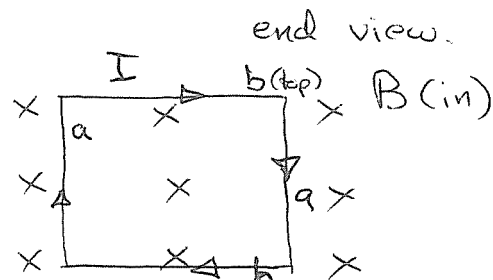 end view.
I
b(top)
B(in)
a
a
b